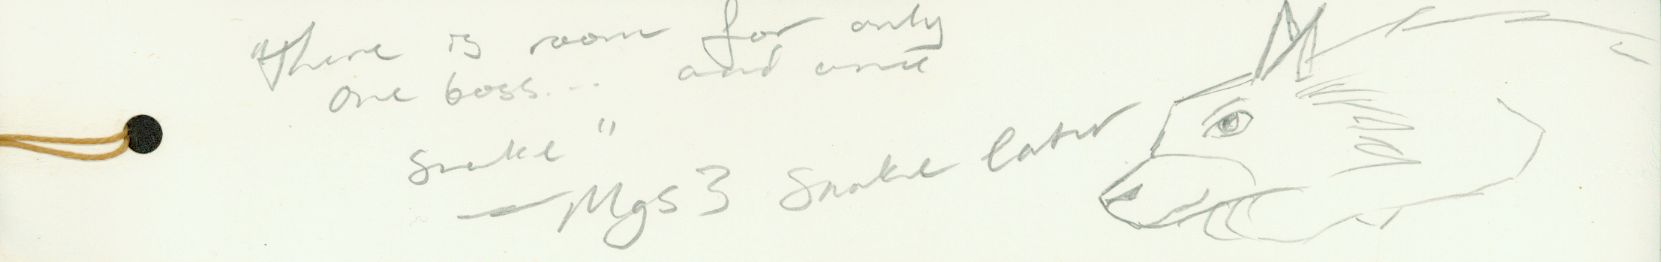 "there is room for only
one boss... and one
snake"
—Mgs3 Snake Eater